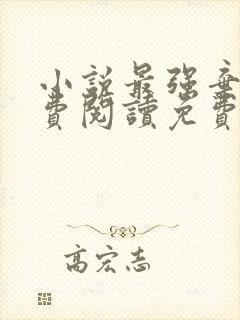 小説最強棄
費閱讀免費
高宏志